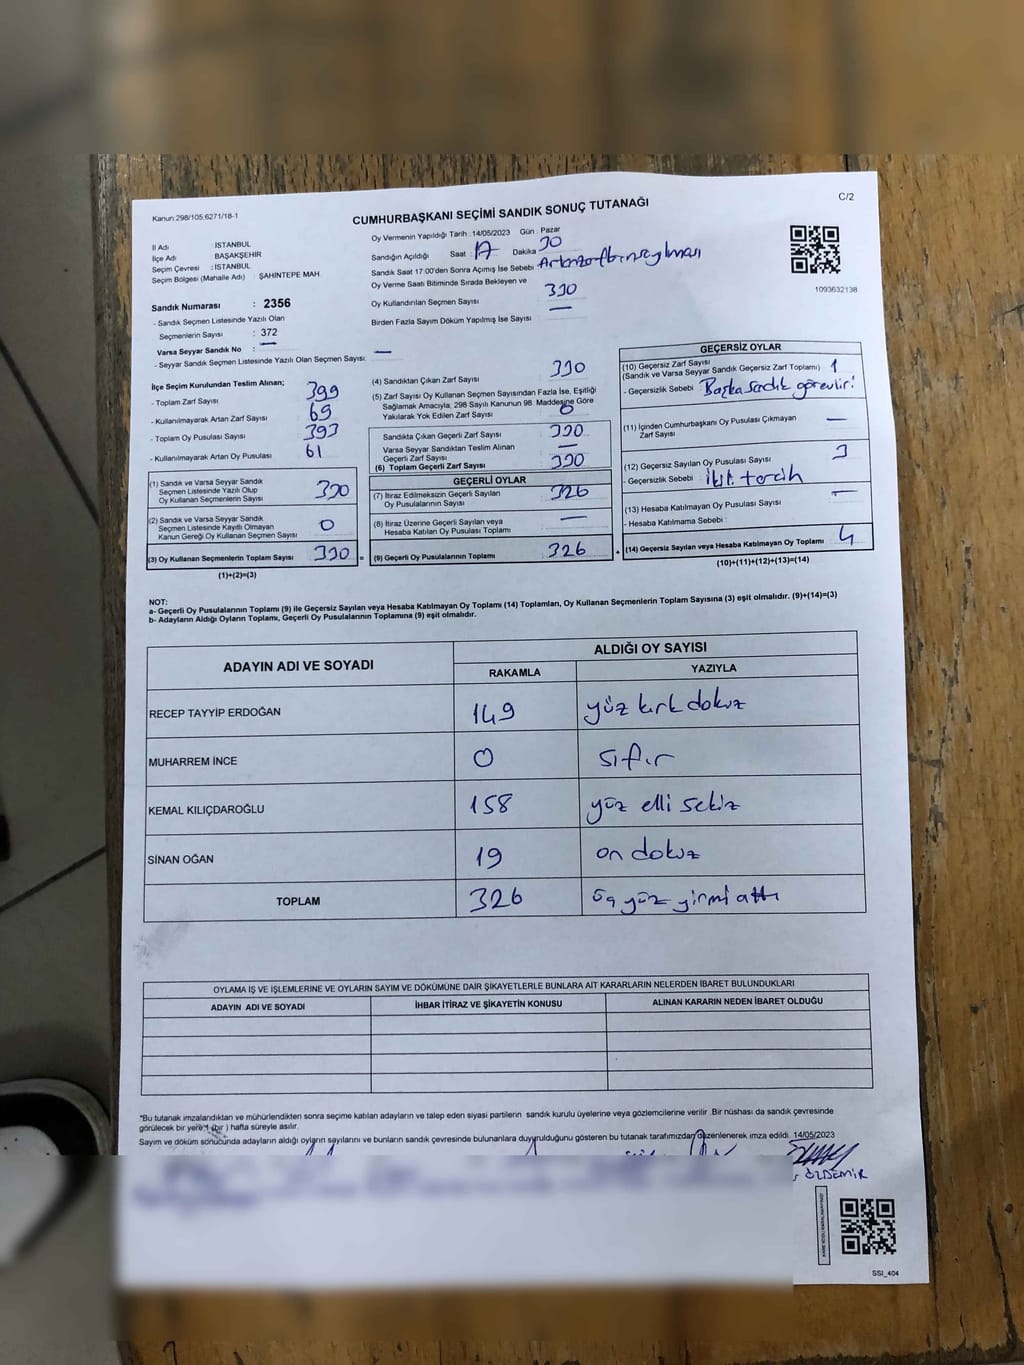 Kanun 298/105,6271/18-1
CUMHURBAŞKANI SEÇİMİ SANDIK SONUÇ TUTANAĞI
C/2
İl Adı : İSTANBUL
İlçe Adı : BAŞAKŞEHİR
Seçim Çevresi : İSTANBUL
Seçim Bölgesi (Mahalle Adı) : ŞAHİNTEPE MAH.
Sandık Numarası : 2356
- Sandık Seçmen Listesinde Yazılı Olan
Seçmenlerin Sayısı : 372
Varsa Seyyar Sandık No : —
- Seyyar Sandık Seçmen Listesinde Yazılı Olan Seçmen Sayısı: —
Oy Vermenin Yapıldığı Tarih : 14/05/2023 Gün : Pazar
Sandığın Açıldığı Saat : 17 Dakika 30
Sandık Saat 17:00'den Sonra Açımış İse Sebebi
Oy Verme Saati Bitiminde Sırada Bekleyen ve
Oy Kullandırılan Seçmen Sayısı 330
Birden Fazla Sayım Döküm Yapılmış İse Sayısı : —
1093632138
İlçe Seçim Kurulundan Teslim Alınan;
- Toplam Zarf Sayısı 399
- Kullanılmayarak Artan Zarf Sayısı 69
- Toplam Oy Pusulası Sayısı 393
- Kullanılmayarak Artan Oy Pusulası 61
(1) Sandık ve Varsa Seyyar Sandık
Seçmen Listesinde Yazılı Olup
Oy Kullanan Seçmenlerin Sayısı 330
(2) Sandık ve Varsa Seyyar Sandık
Seçmen Listesinde Kayıtlı Olmayan
Kanun Gereği Oy Kullanan Seçmen Sayısı 0
(3) Oy Kullanan Seçmenlerin Toplam Sayısı 330 =
(1)+(2)=(3)
(4) Sandıktan Çıkan Zarf Sayısı 330
(5) Zarf Sayısı Oy Kullanan Seçmen Sayısından Fazla İse, Eşitliği
Sağlamak Amacıyla, 298 Sayılı Kanunun 98. Maddesine Göre
Yakılarak Yok Edilen Zarf Sayısı 0
Sandıkta Çıkan Geçerli Zarf Sayısı 330
Varsa Seyyar Sandıktan Teslim Alınan
Geçerli Zarf Sayısı —
(6) Toplam Geçerli Zarf Sayısı 330
GEÇERLİ OYLAR
(7) İtiraz Edilmeksizin Geçerli Sayılan
Oy Pusulalarının Sayısı 326
(8) İtiraz Üzerine Geçerli Sayılan veya
Hesaba Katılan Oy Pusulası Toplamı —
(9) Geçerli Oy Pusulalarının Toplamı 326 +
GEÇERSİZ OYLAR
(10) Geçersiz Zarf Sayısı
(Sandık ve Varsa Seyyar Sandık Geçersiz Zarf Toplamı) 1
- Geçersizlik Sebebi Başka sandık görevlisi
(11) İçinden Cumhurbaşkanı Oy Pusulası Çıkmayan
Zarf Sayısı —
(12) Geçersiz Sayılan Oy Pusulası Sayısı 3
- Geçersizlik Sebebi iki tercih
(13) Hesaba Katılmayan Oy Pusulası Sayısı —
- Hesaba Katılmama Sebebi :
(14) Geçersiz Sayılan veya Hesaba Katılmayan Oy Toplamı 4
(10)+(11)+(12)+(13)=(14)
NOT:
a- Geçerli Oy Pusulalarının Toplamı (9) ile Geçersiz Sayılan veya Hesaba Katılmayan Oy Toplamı (14) Toplamları, Oy Kullanan Seçmenlerin Toplam Sayısına (3) eşit olmalıdır. (9)+(14)=(3)
b- Adayların Aldığı Oyların Toplamı, Geçerli Oy Pusulalarının Toplamına (9) eşit olmalıdır.
ADAYIN ADI VE SOYADI
ALDIĞI OY SAYISI
RAKAMLA YAZIYLA
RECEP TAYYİP ERDOĞAN 149 yüz kırk dokuz
MUHARREM İNCE 0 sıfır
KEMAL KILIÇDAROĞLU 158 yüz elli sekiz
SİNAN OĞAN 19 on dokuz
TOPLAM 326 üç yüz yirmi altı
OYLAMA İŞ VE İŞLEMLERİNE VE OYLARIN SAYIM VE DÖKÜMÜNE DAİR ŞİKAYETLERLE BUNLARA AİT KARARLARIN NELERDEN İBARET BULUNDUKLARI
ADAYIN ADI VE SOYADI İHBAR İTİRAZ VE ŞİKAYETİN KONUSU ALINAN KARARIN NEDEN İBARET OLDUĞU
*Bu tutanak imzalandıktan ve mühürlendikten sonra seçime katılan adayların ve talep eden siyasi partilerin sandık kurulu üyelerine veya gözlemcilerine verilir. Bir nüshası da sandık çevresinde
görülecek bir yere 1 (bir) hafta süreyle asılır.
Sayım ve döküm sonucunda adayların aldığı oyların sayılarını ve bunların sandık çevresinde bulunanlara duyurulduğunu gösteren bu tutanak tarafımızdan düzenlenerek imza edildi. 14/05/2023
ÖZDEMİR
SSI_404